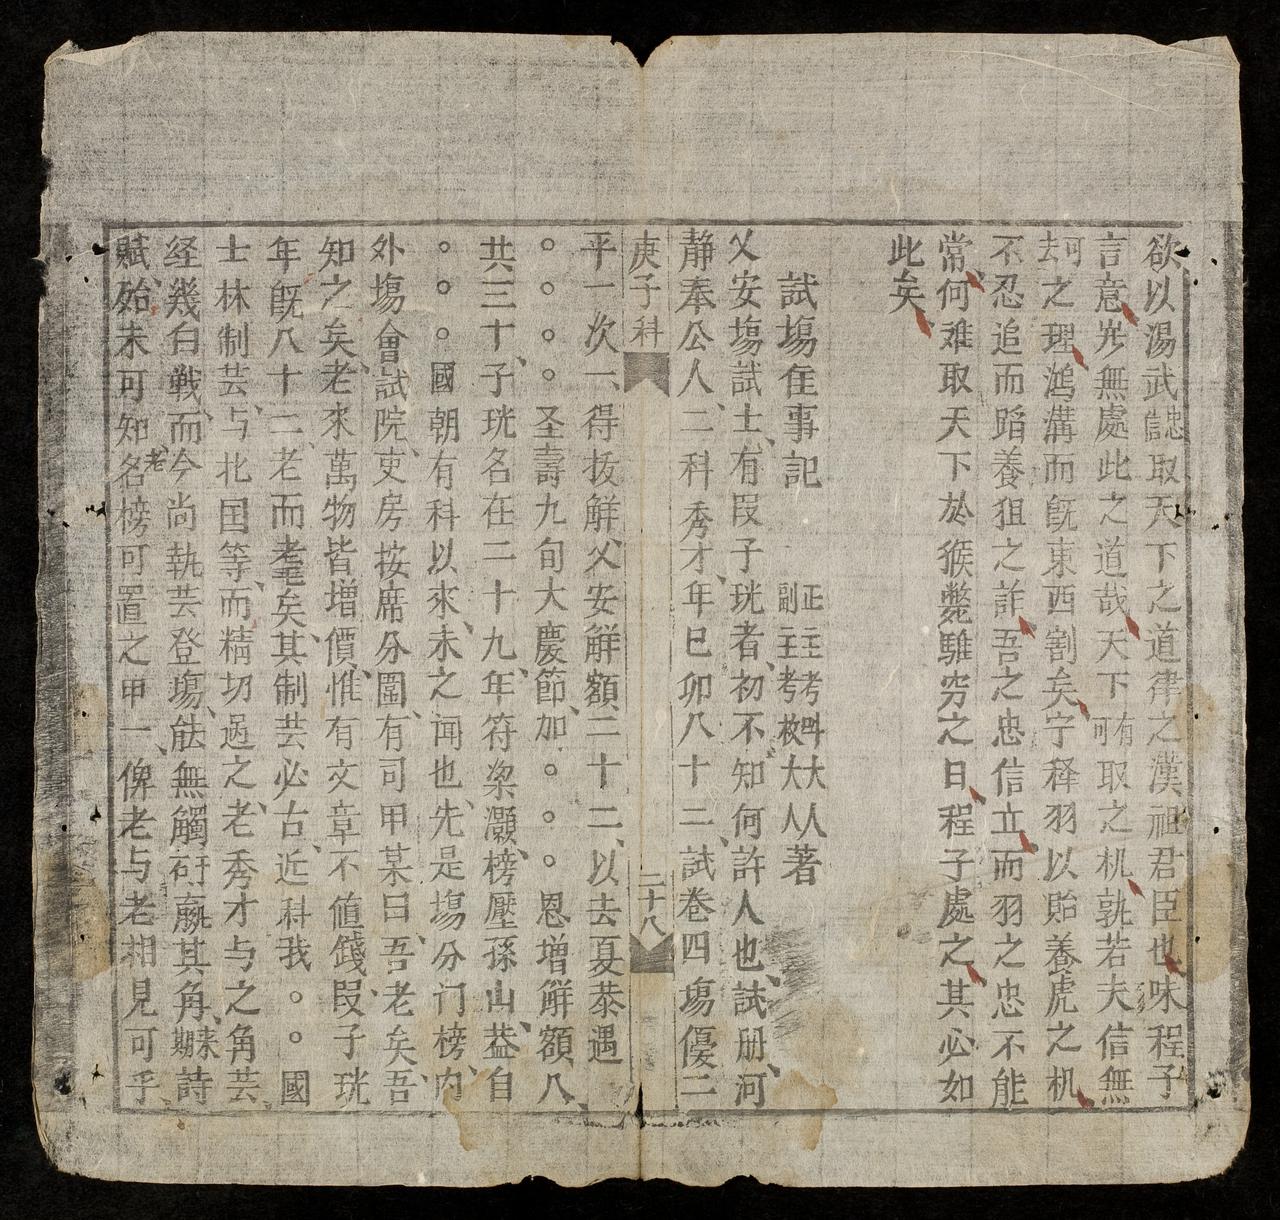 欲以湯武誌取天下之道律之漢祖君臣也味程子
言意岁無處此之道哉天下可有取之机孰若夫信無
去可之理鴻溝而既東西割矣宁释羽以貽養虎之机
不忍追而蹈養狙之詐吾之忠信立而羽之忠不能
常何难取天下於猴斃騅穷之日程子處之其必如
此矣
試塲徃事記 正主考叫大人副主考枚大人著
乂安塲試士有叚子珖者初不知何許人也試册河
静奉公人二科秀才年巳卯八十二試卷四塲優二
庚子科 二十八
平一次一得拔解乂安解額二十二以去夏恭遇
。。。。圣壽九旬大慶節加。。。恩增解額八
共三十子珖名在二十九年符梁灏榜壓孫山盖自
。。。國朝有科以來未之闻也先是塲分门榜内
外塲會試院吏房按席分圍有司甲某曰吾老矣吾
知之矣老來萬物皆增價惟有文章不値錢叚子珖
年既八十二老而耄矣其制芸必古近科我。。國
士林制芸与北国等而精切過之老秀才与之角芸
经幾白戰而今尚執芸登塲能無觸葑羸其角來期詩
賦殆未可知老名榜可置之甲一俾老与老相見可乎